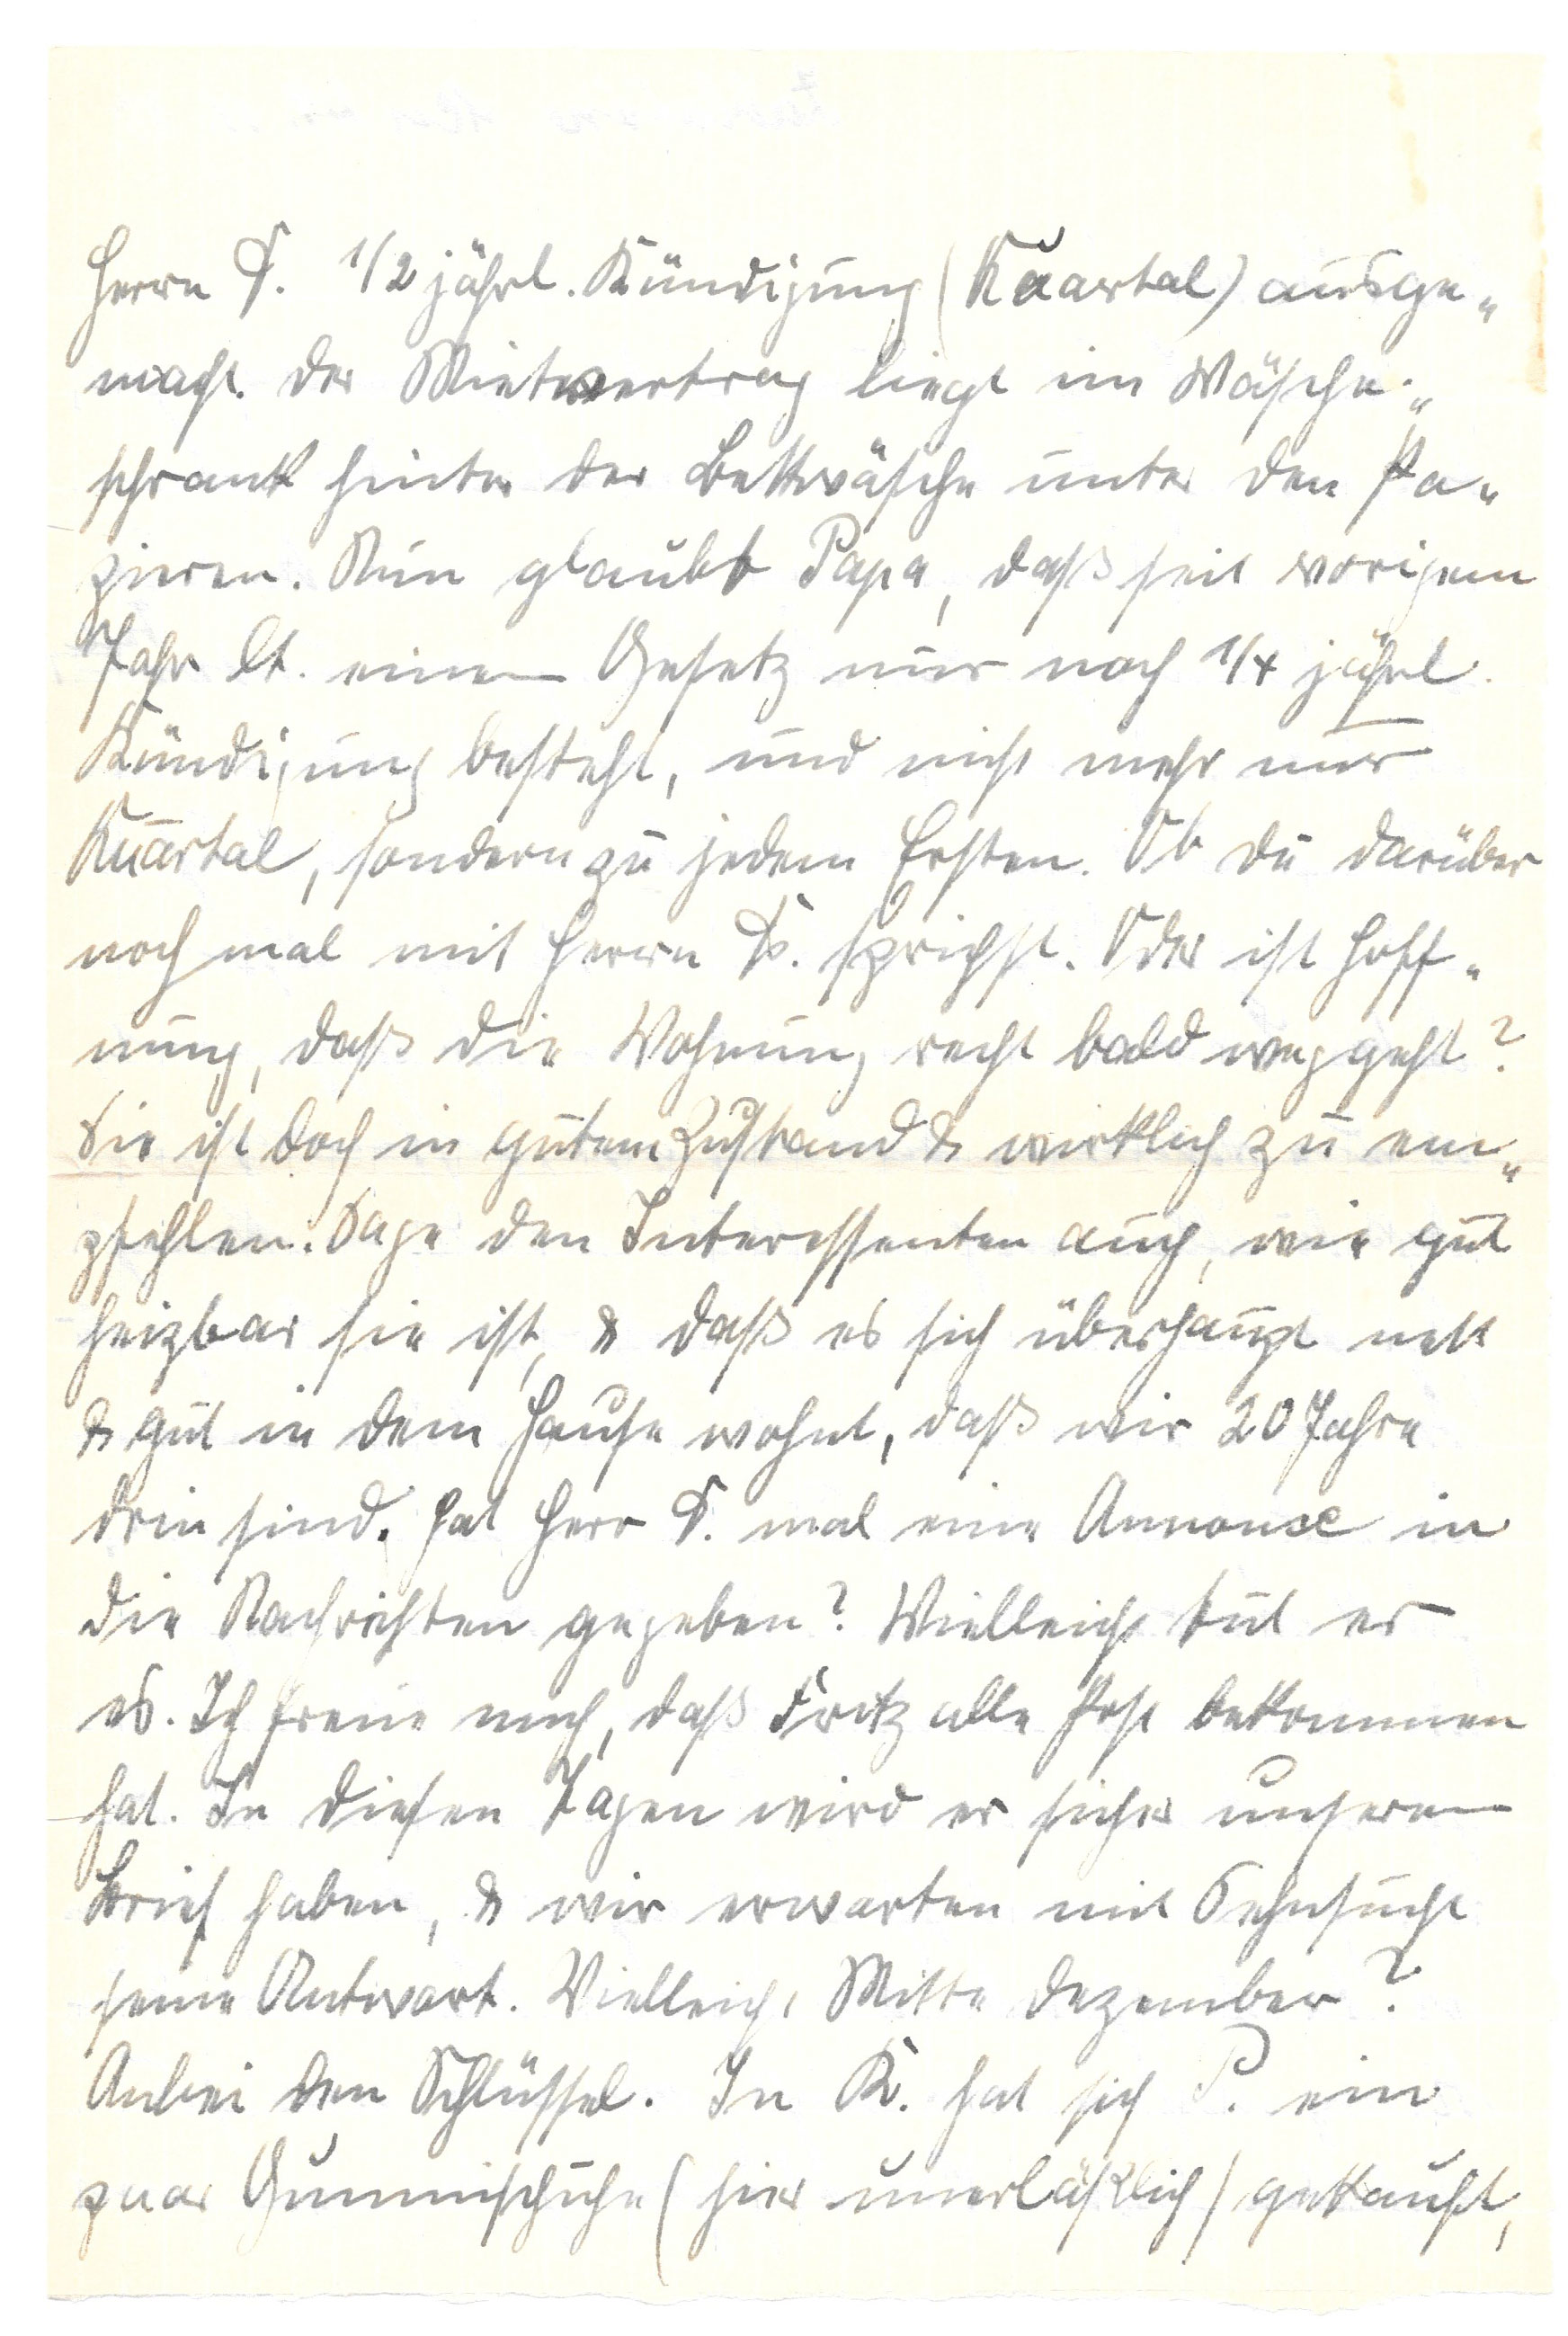 Herrn S. 1/2 jährl. Kündigung (Kuartal) ausge„
macht. Der Mietvertrag liegt im Wäsche„
schrank hinter der Bettwäsche unter den Pa„
pieren. Nun glaubt Papa, daß seit vorigem
Jahr lt. einem Gesetz nur noch 1/4 jährl.
Kündigung besteht, und nicht mehr nur
Kuartal, sondern zu jedem Ersten. Ob du darüber
noch mal mit Herrn S. sprichst. Oder ist Hoff„
nung, daß die Wohnung recht bald weggeht?
Sie ist doch in gutem Zustand & wirklich zu em„
pfehlen. Sage den Interessenten auch, wie gut
heizbar sie ist, & daß es sich überhaupt nett
& gut in dem Hause wohnt, daß wir 20 Jahre
drin sind. Hat Herr S. mal eine Annonce in
die Nachrichten gegeben? Vielleicht tut er
es. Ich freue mich, daß Fritz alle Post bekommen
hat. In diesen Tagen wird er sicher unseren
Brief haben, & wir erwarten mit Sehnsucht
seine Antwort. Vielleicht Mitte Dezember?
Anbei den Schlüssel. In K. hat sich P. ein
paar Gummischuhe (hier unerläßlich) gekauft,